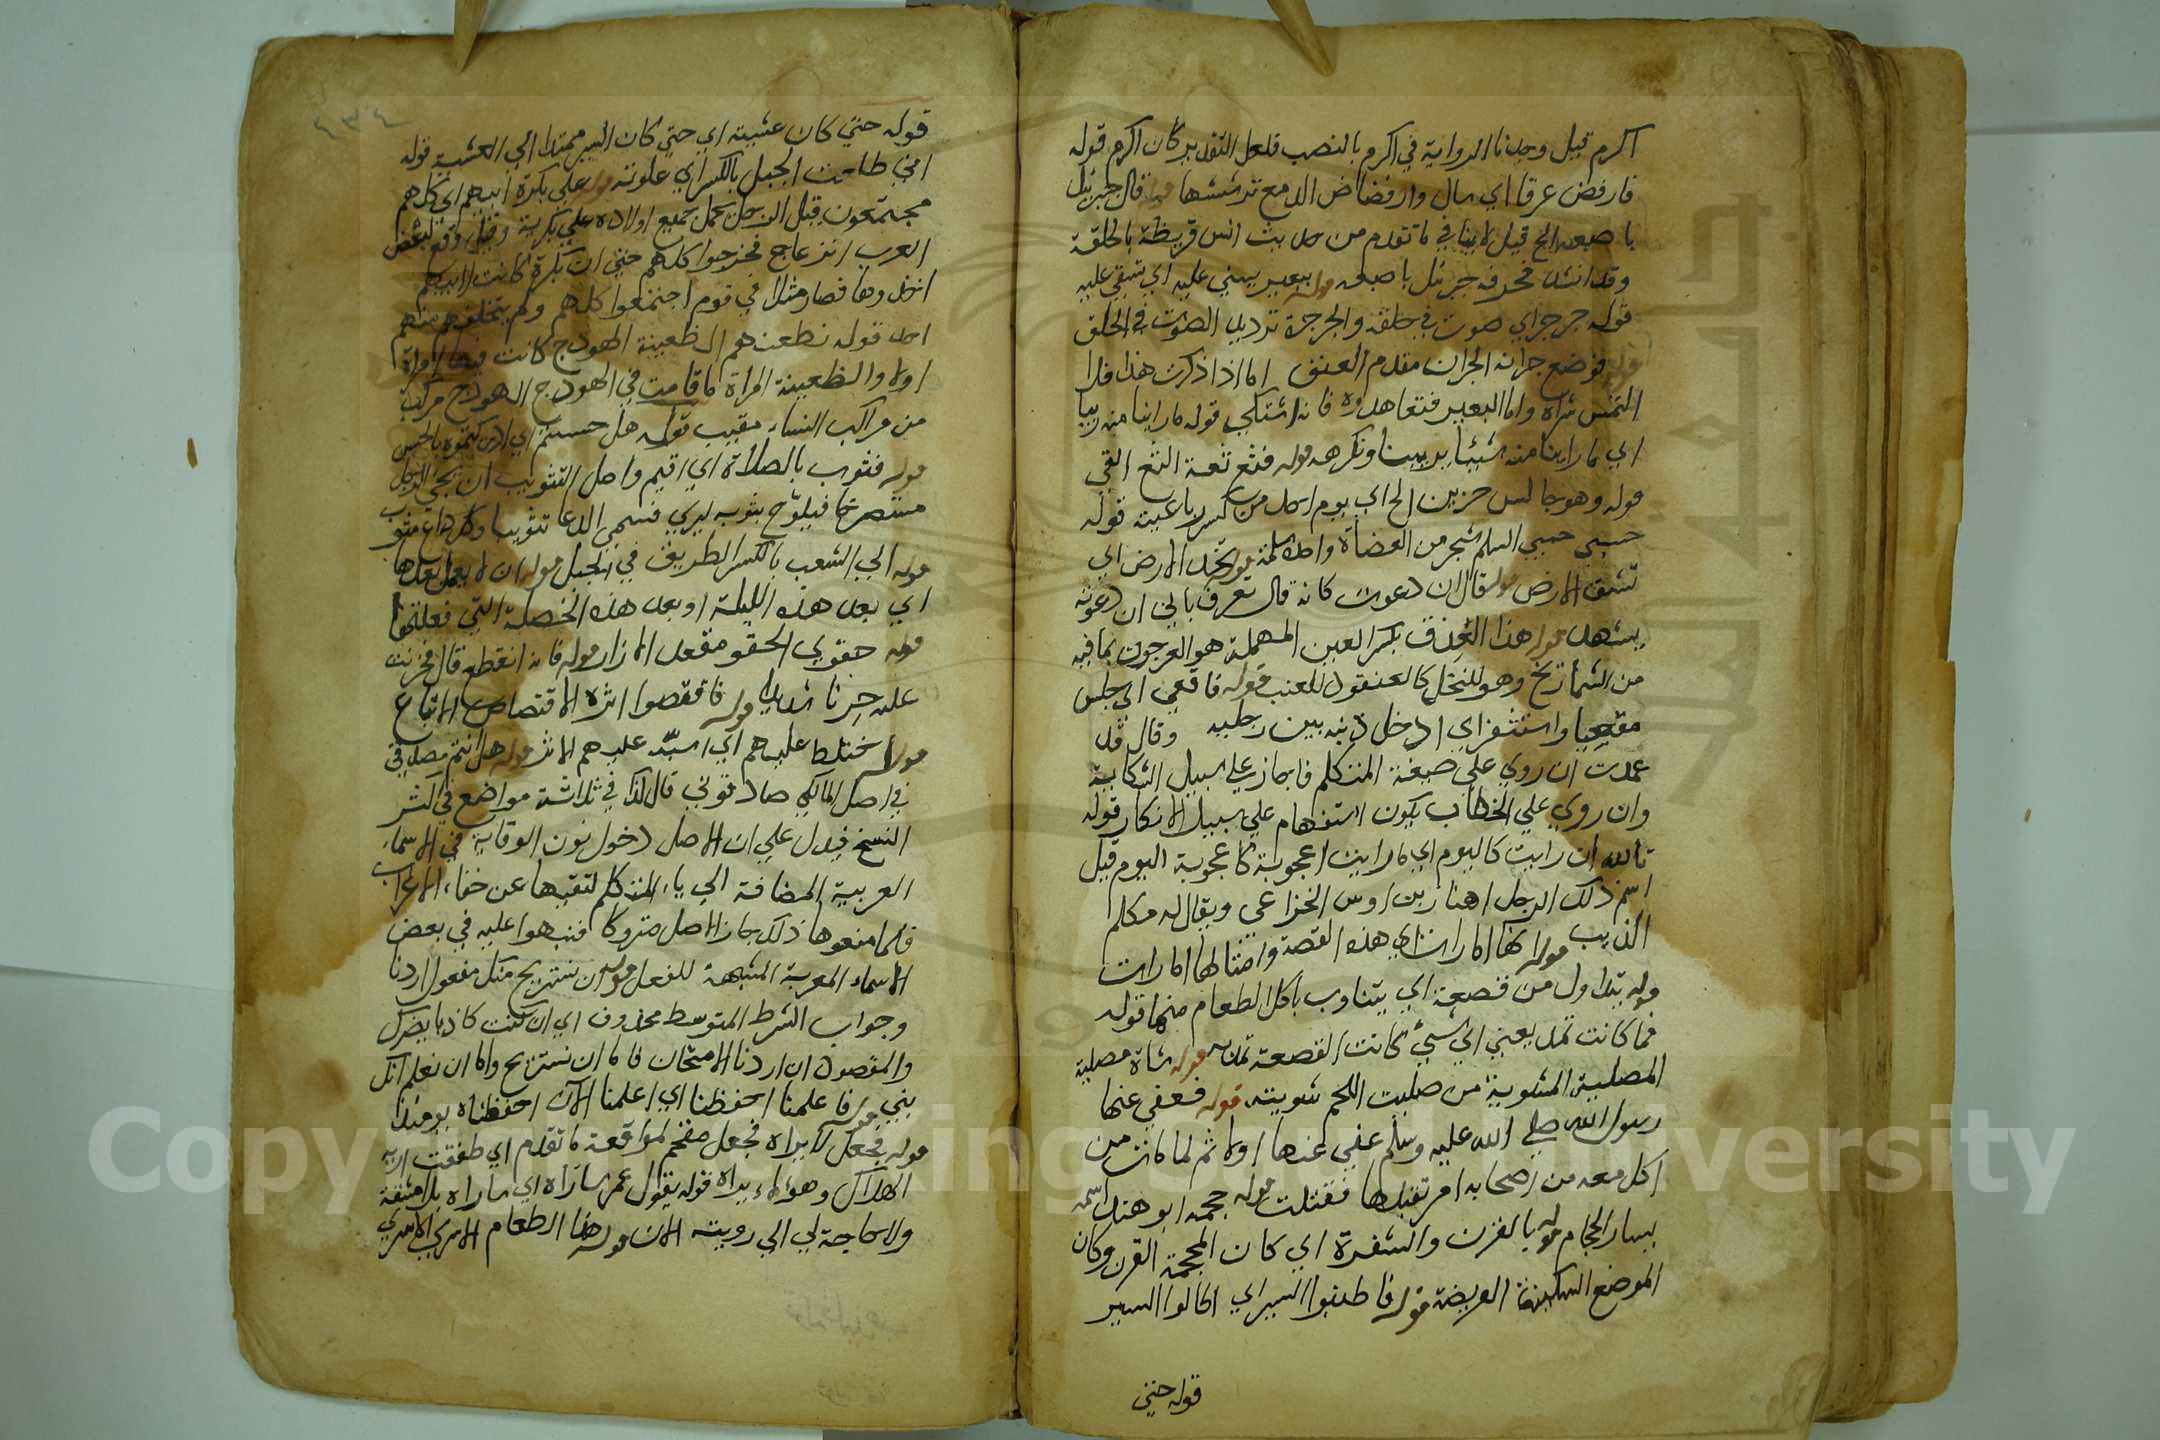 اكرم قيل وجدنا الرواية في اكرم بالنصب فلعل التقدير كان اكرم قوله
فارفض عرقا اي سال وارفضاض الدمع ترششها قوله قال جبرئيل
باصبعه الخ قيل لا ينافي ما تقدم من حديث انس قريظة بالحلقة
وقد انسد فخرقه جبرئيل باصبعه قوله ببعير يسني عليه اي تستقي عليه
قوله جرجر اي صوت في حلقه والجرجرة ترديد الصوت في الحلق
قوله فوضع جرانه الجران مقدم العنق اما اذا ذكرت هذا فلا
التمس شراه واما البعير فتعاهدوه فانه اشتكي قوله ما راينا منه ريبا
اي ما راينا منه شيئا يريبنا ونكرهه قوله فثع ثعة الثع القي
قوله وهو جالس حزين الخ اي يوم احد من كسر رباعيته قوله
حسبي حسبي السلم شجر من العضاة واحده سلمة قوله تخد الارض اي
تشق الارض قوله قال ان دعوت كانه قال تعرف باني ان دعوته
يشهد قوله هذا العذق بكسر العين المهملة هو العرجون بما فيه
من الشماريخ وهو للنخل كالعنقود للعنب قوله فاقعي اي جلس
مقعيا واستثفر اي ادخل ذنبه بين رجليه وقال قد
عمدت ان روي علي صيغة المتكلم فاخبار علي سبيل الشكاية
وان روي علي الخطاب يكون استفهام علي سبيل الانكار قوله
تالله ان رايت كاليوم اي ما رايت اعجوبة كاعجوبة اليوم قيل
اسم ذلك الرجل اهبان بن اوس الخزاعي ويقال له مكلم
الذيب قوله انها امارات اي هذه القصة وامثالها امارات
قوله يتداول من قصعة اي يتناوب باكل الطعام منها قوله
فما كانت تمد يعني اي شيئ كانت القصعة تمد به قوله شاة مصلية
المصلية المشوية من صليت اللحم شويته قوله فعفي عنها
رسول الله صلي الله عليه وسلم عفي عنها اولا ثم لما مات من
اكل معه من اصحابه امر بقتلها فقتلت قوله حجمه ابو هند اسمه
يسار الحجام قوله بالقرن والشفرة اي كان المحجمة القرن وكان
الموضع السكينة العريضة قوله فاطنبوا السير اي اطالوا السير
قوله حتي
قوله حتي كان عشية اي حتي كان السير ممتدا الي العشية قوله
اني طلعت الجبل بالكسر اي علوته قوله علي بكرة ابيهم اي كلهم
مجتمعون قيل الرجل يحمل جميع اولاده علي بكرية وقيل وقع لبعض
العرب انزعاج فخرجوا كلهم حتي ان بكرة كانت لابيهم
اخذوها فصار مثلا في قوم اجتمعوا كلهم ولم يتخلف منهم
احد قوله بظعنهم الظعينة الهودج كانت فيها امراة
اولا والظعينة المراة ما قامت في الهودج الهودج مركب
من مراكب النساء مقبب قوله هل حسستم اي ادركتموه بالحس
قوله فثوب بالصلاة اي اقيم واصل التثويب ان يجي الرجل
مستصرخا فيلوّح بثوبه ليري فسمي الدعا تثويبا وكل داع مثوب
قوله الي الشعب بالكسر الطريق في الجبل قوله ان لا يعمل بعدها
اي بعد هذه الليلة او بعد هذه الخصلة التي فعلتها
قوله حقوي الحقو مقعد الازار قوله فانه انقطع قال فحزنت
عليه حزنا شديدا قوله فاقتصوا اثره الاقتصاص الاتباع
قوله اختلط عليهم اي اشتبه عليهم الاثر قوله هل انتم مصدقي
في اصل المالكي صادقوني قال كذا في ثلاثة مواضع في اكثر
النسخ فيدل علي ان الاصل دخول نون الوقاية في الاسماء
العربية المضافة الي ياء المتكلم لتقيها عن خفاء الاعراب
فلما منعوها ذلك جاز الاصل متروكا فنبهوا عليه في بعض
الاسماء المعربة المشبهة للفعل قوله ان نستريح منك مفعول اردنا
وجواب الشرط المتوسط محذوف اي ان كنت كاذبا يضرك
والمقصود ان اردنا الامتحان فاما ان نستريح واما ان نعلم انك
نبي قوله فاعلمنا احفظنا اي اعلمنا الآن احفظناه يومئذ
قوله فجعل لا يراه فجعل مقحم لمواقعة ما تقدم اي طفقت اريه
الهلال وهو لا يراه قوله يقول عمر ساراه اي ساراه بلا مشقة
ولا حاجة لي الي رويته الان قوله هذا الطعام الاسري الاسري